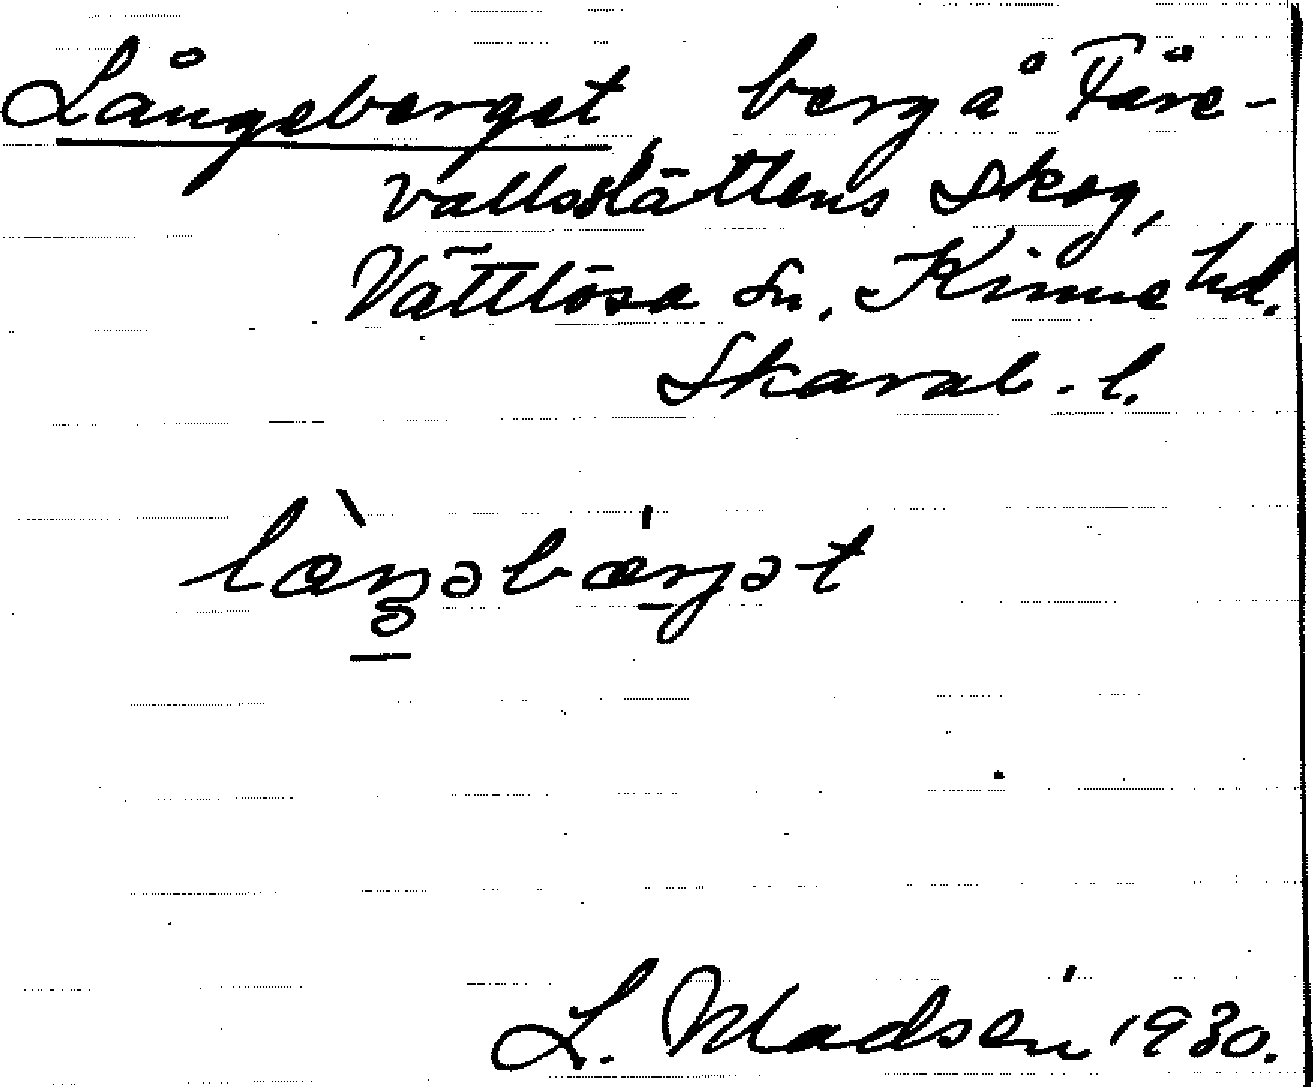 Långeberget, berg å Fåre-
vallsslättens skog,
Vättlösa sn, Kinne hd.
Skarab. l.
L. Madsén 1930.